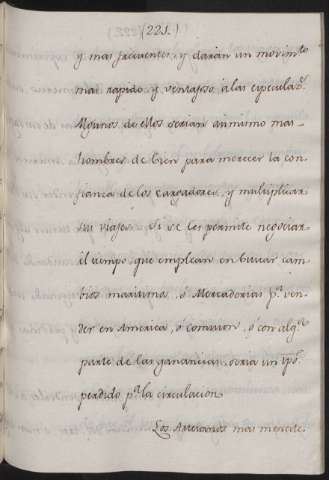 (221.)
y mas frecuentes, y darán un movim.to
mas rapido y ventajoso á las especulaz.s
Algunos de ellos serian asimismo mas
hombres de bien para merecer la con-
fianza de los Cargadores, y multiplicar
sus viajes. Si se les permite negociar
el tiempo que emplean en buscar cam-
bios maritimos, ó Mercadorias p.a ven-
der en America, ó comision, ó con alg.a
parte de las ganancias, seria un tpo.
perdido p.a la circulacion.
Los Artesanos mas